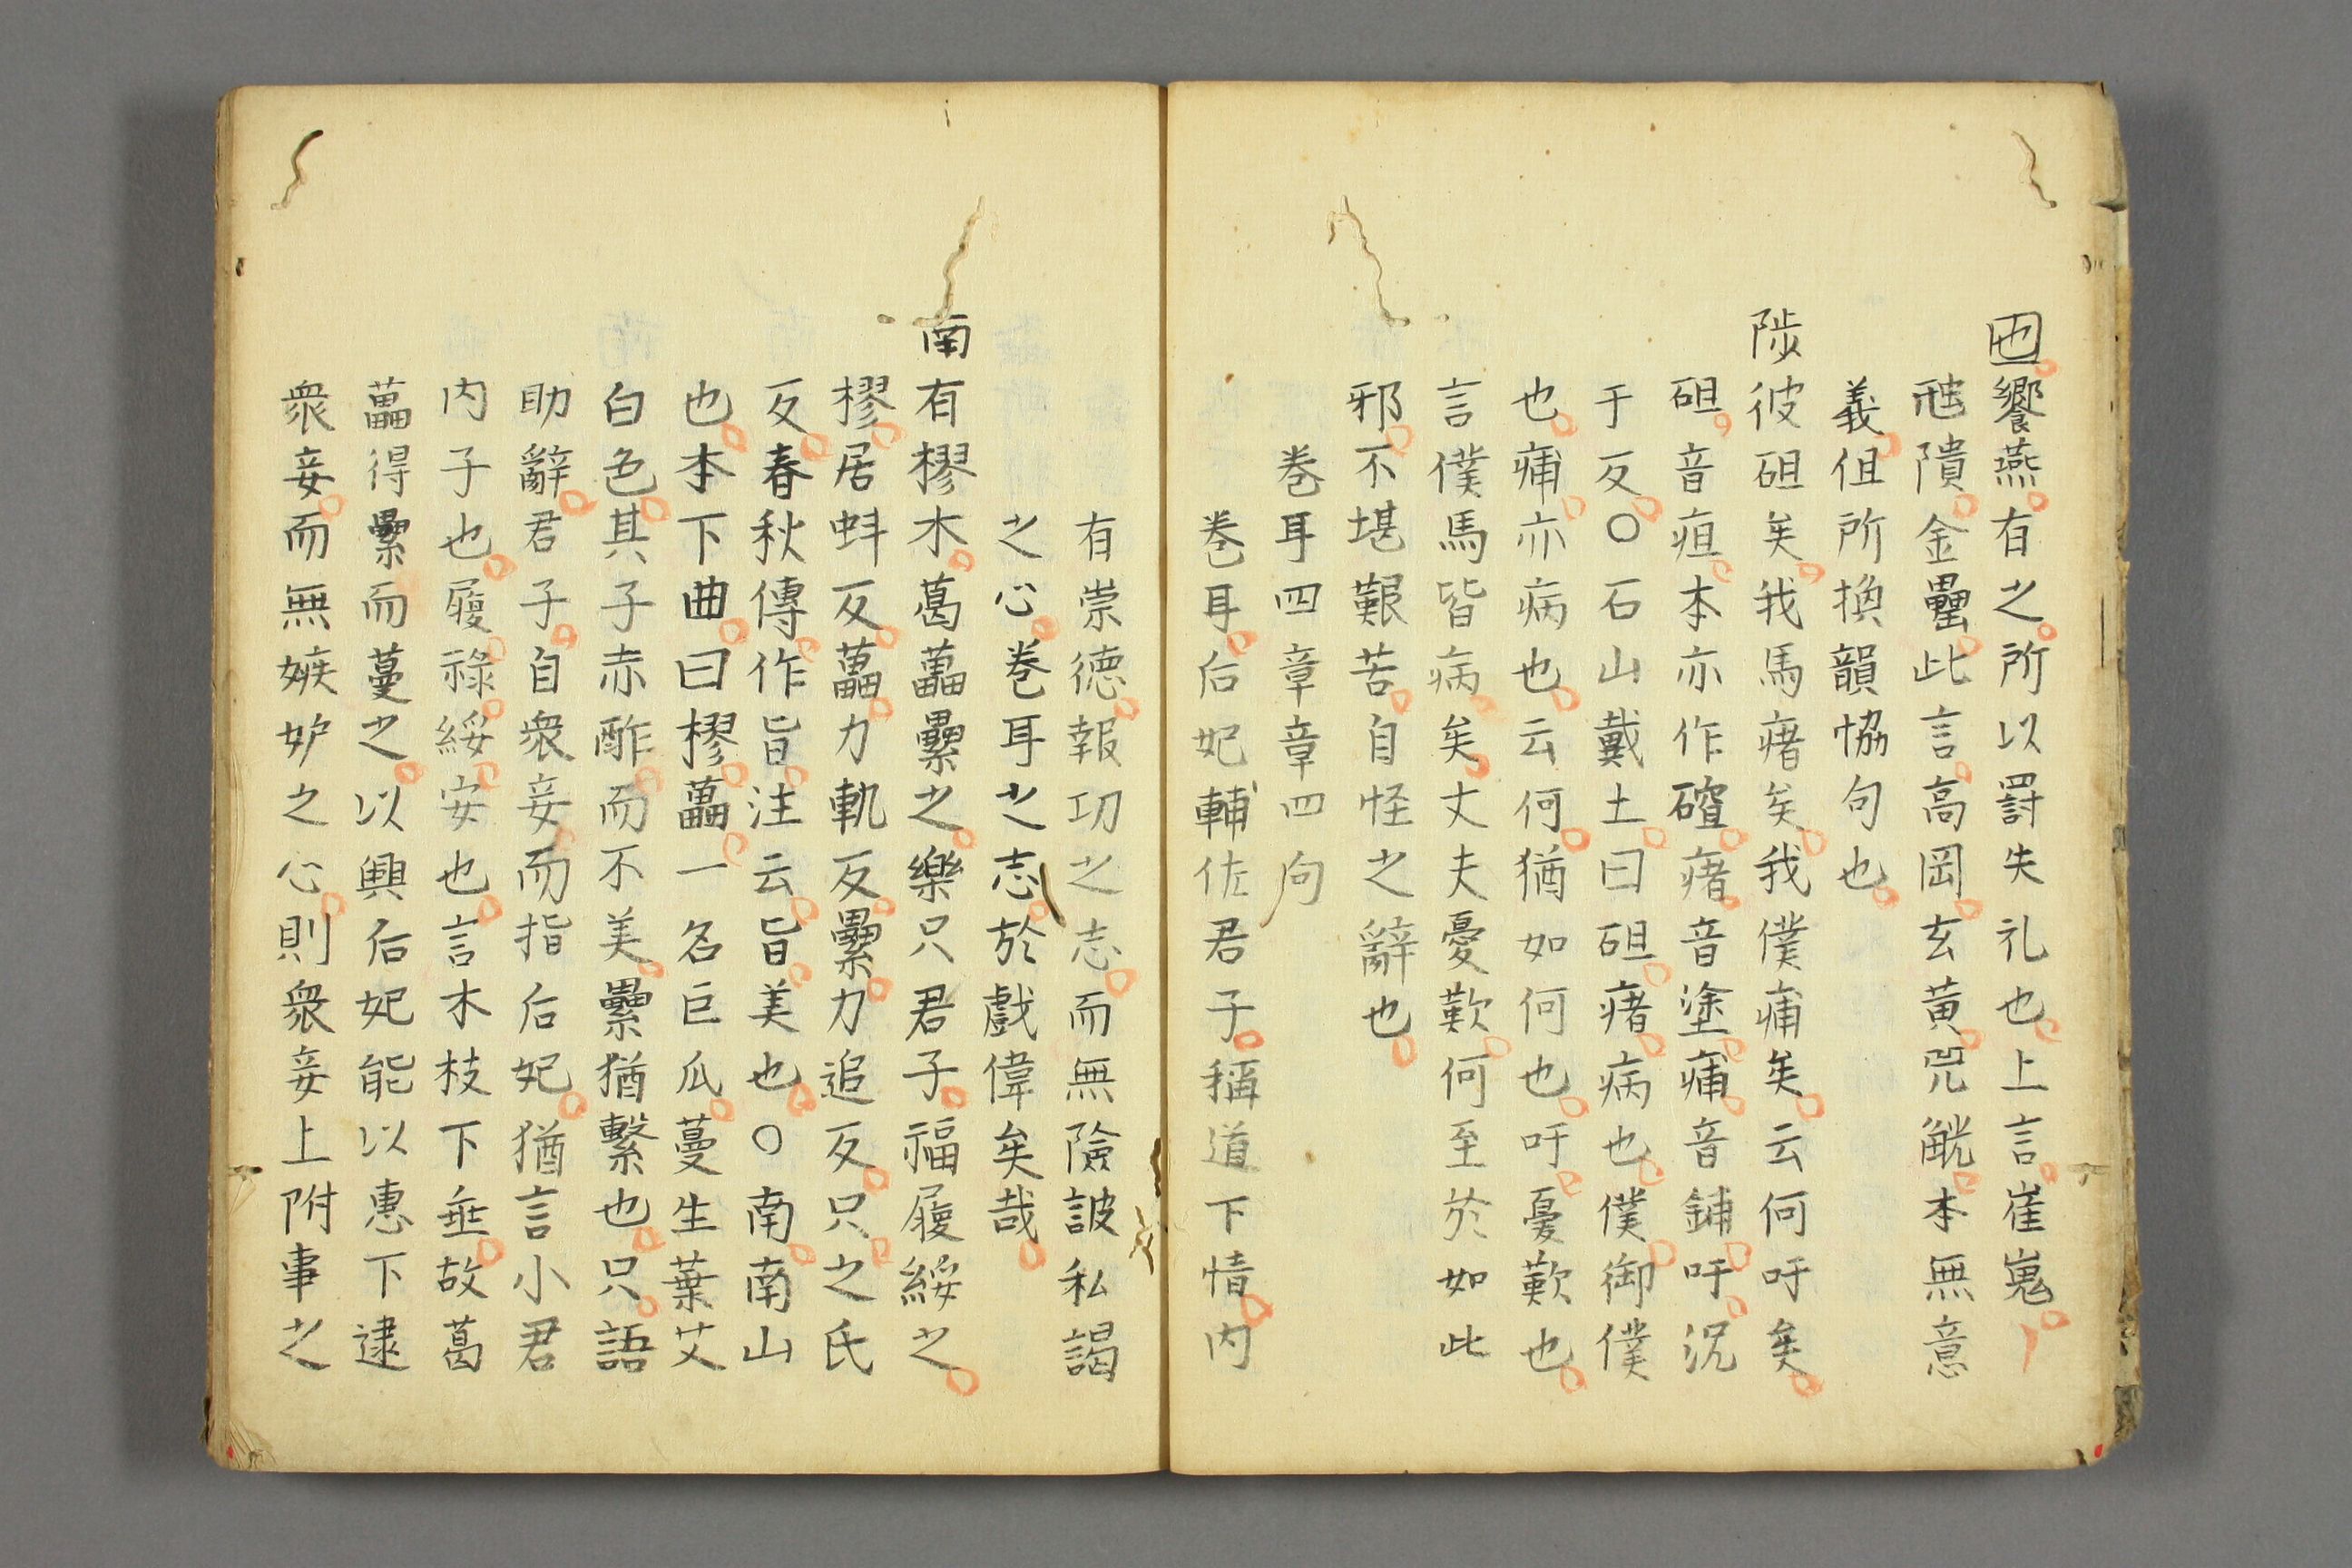 也饗燕有之所以罸失礼也上言崔嵬
虺隤金罍此言高岡玄黄兕觥本無意
義但所換韻恊句也
陟彼砠矣我馬瘏矣我僕痡矣云何吁矣
砠音疽本亦作確瘏音塗痡音鋪吁況
于反○石山戴土曰砠瘏病也僕御僕
也痡亦病也云何猶如何也吁憂歎也
言僕馬皆病矣丈夫憂歎何至於如此
邪不堪艱苦自怪之辭也
卷耳四章章四句
卷耳后妃輔佐君子稱道下情内
有崇德報功之志而無險詖私謁
之心卷耳之志於戲偉矣哉
南有樛木葛藟纍之樂只君子福履綏之
樛居蚪反藟力軌反纍力追反只之氏
反春秋傳作旨注云旨美也○南南山
也本下曲曰樛藟一名巨瓜蔓生葉艾
白色其子赤酢而不美纍猶繫也只語
助辭君子自衆妾而指后妃猶言小君
内子也履祿綏安也言木枝下垂故葛
藟得纍而蔓之以興后妃能以惠下逮
衆妾而無嫉妒之心則衆妾上附事之